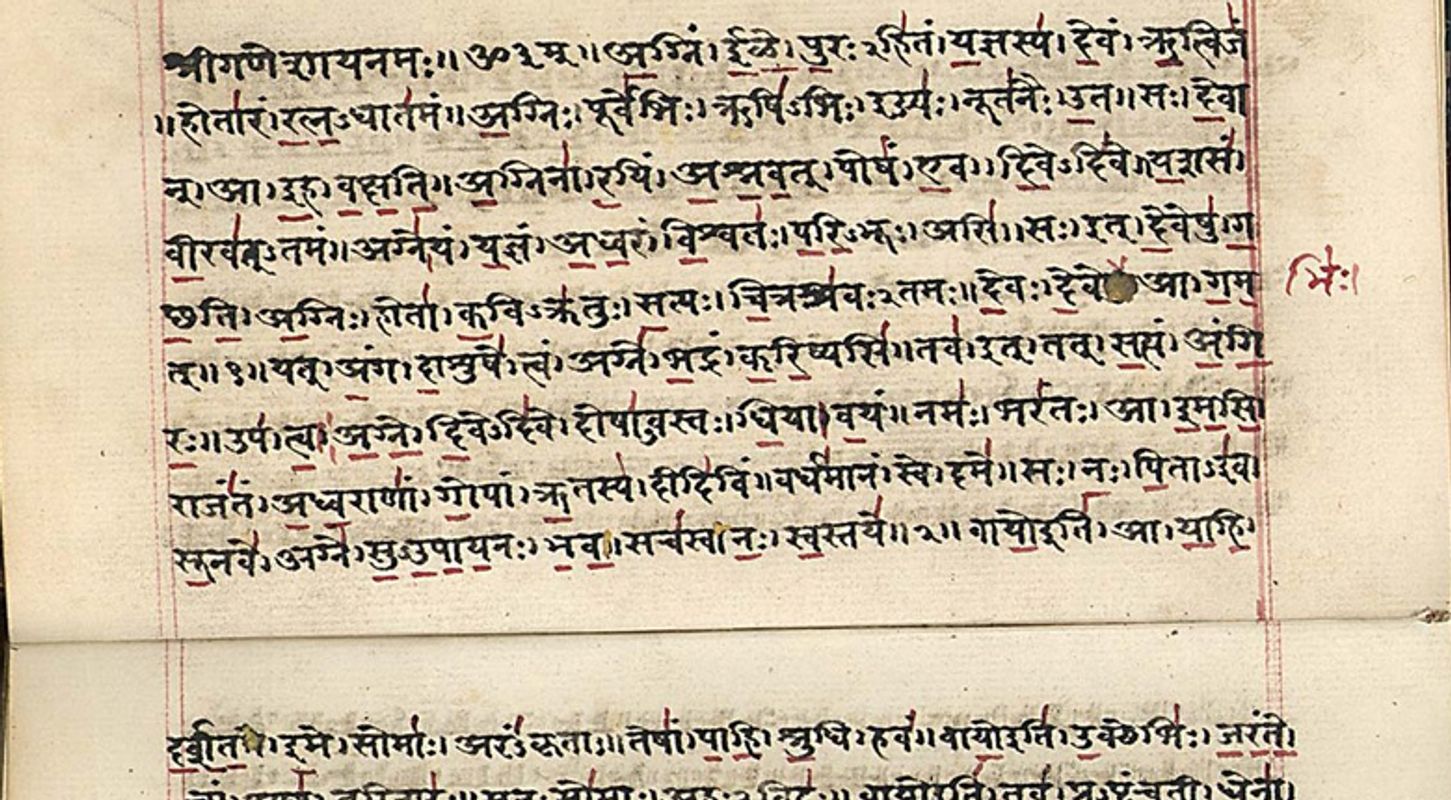 श्रीगणेशायनमः॥ॐ३म्॥अग्निं।ईळे।पुरः२हितं।यज्ञस्य।देवं।ऋत्विजं
॥होतारं।रत्नऽधातमं॥अग्निः।पूर्वेभिः।ऋषिऽभिः।ईड्यः।नूतनैः।उत॥सः।देवा
न्।आ।इह।वक्षति॥अग्निना।रयिं।अश्नवत्।पोषं।एव।दिवेऽदिवे॥यशसं।
वीरवत्ऽतमं॥अग्नेयं।यज्ञं।अध्वरं।विश्वतः।परिऽभूः।असि॥सः।इत्।देवेषु।ग
छति।अग्निः।होता।कविऽक्रतुः।सत्यः।चित्रश्रवः२तमः॥देवः।देवे आ।गम
भिः।
त्॥१॥यत्।अंग।दाशुषे।त्वं।अग्ने।भद्रं।करिष्यसि॥तव।इत्।तत्।सत्यं।अंगि
रः॥उप।त्वा।अग्ने।दिवेऽदिवे।दोषाऽवस्तः।धिया।वयं॥नमः।भरंतः।आ।इमसि।
राजंतं।अध्वराणां।गोपां।ऋतस्य।दीदिविं॥वर्धमानं।स्वे।दमे॥सः।नः।पिताऽइव।
सूनवे।अग्ने।सुऽउपायनः।भव॥सचस्व।नः।स्वस्तये॥२॥वायोइति।आ।याहि।
दर्शत।इमे।सोमाः।अरंऽकृताः॥तेषां।पाहि।श्रुधि।हवं॥वायोइति।उक्थेभिः।जरंते।